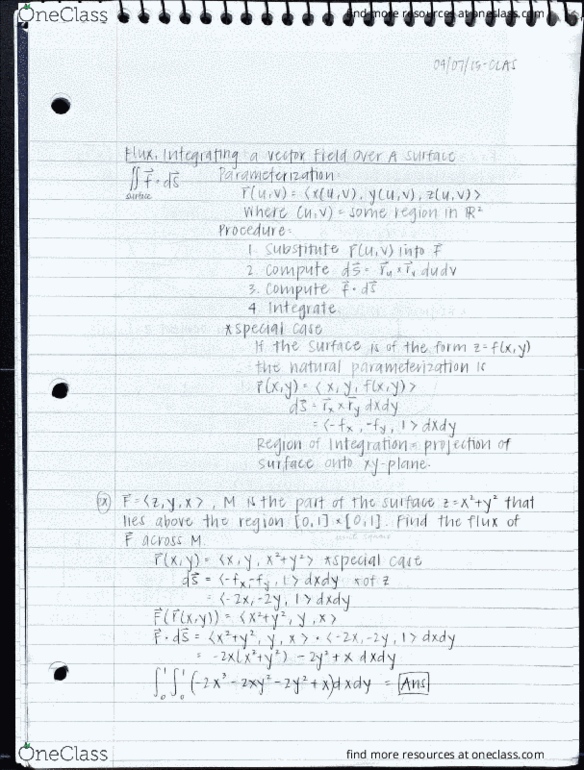 OneClass
find more resources at oneclass.com
04/07/15-CLAS
Flux: Integrating a vector Field Over A surface
∬ F⃗ · dS⃗ Parameterization:
surface
r⃗(u,v) = <x(u,v), y(u,v), z(u,v)>
Where (u,v) = some region in ℝ²
Procedure:
1. Substitute r⃗(u,v) into F⃗
2. Compute dS⃗ = r⃗ᵤ × r⃗ᵥ dudv
3. Compute F⃗ · dS⃗
4. Integrate
*special case
If the surface is of the form z=f(x,y)
the natural parameterization is
r⃗(x,y) = <x, y, f(x,y)>
dS⃗ = r⃗x × r⃗y dxdy
= <-fx, -fy, 1> dxdy
Region of Integration = projection of
surface onto xy-plane.
(ex) F⃗ = <z, y, x>, M is the part of the surface z=x²+y² that
lies above the region [0,1]×[0,1]. Find the flux of
F⃗ across M.
r⃗(x,y) = <x, y, x²+y²> *special case
dS⃗ = <-fx, -fy, 1> dxdy *of z
= <-2x, -2y, 1> dxdy
F⃗(r⃗(x,y)) = <x²+y², y, x>
F⃗ · dS⃗ = <x²+y², y, x> · <-2x, -2y, 1> dxdy
= -2x(x²+y²) - 2y² + x dxdy
∫₀¹ ∫₀¹ (-2x³ - 2xy² - 2y² + x) dxdy = Ans
OneClass
find more resources at oneclass.com